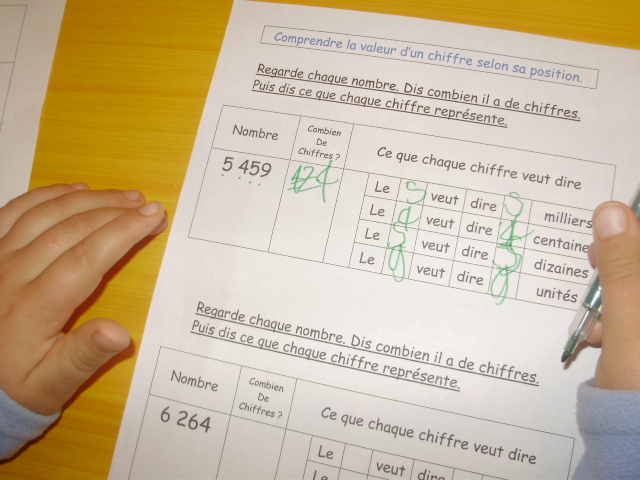 Comprendre la valeur d'un chiffre selon sa position.
Regarde chaque nombre. Dis combien il a de chiffres.
Puis dis ce que chaque chiffre représente.
Nombre
Combien
De
Chiffres ?
Ce que chaque chiffre veut dire
5 459
4
Le 5 veut dire 5 milliers
Le 4 veut dire 4 centaine
Le 5 veut dire 5 dizaines
Le 9 veut dire 9 unités
Regarde chaque nombre. Dis combien il a de chiffres.
Puis dis ce que chaque chiffre représente.
Nombre
Combien
De
Chiffres ?
Ce que chaque chiffre veut dire
6 264
Le veut dire
Le